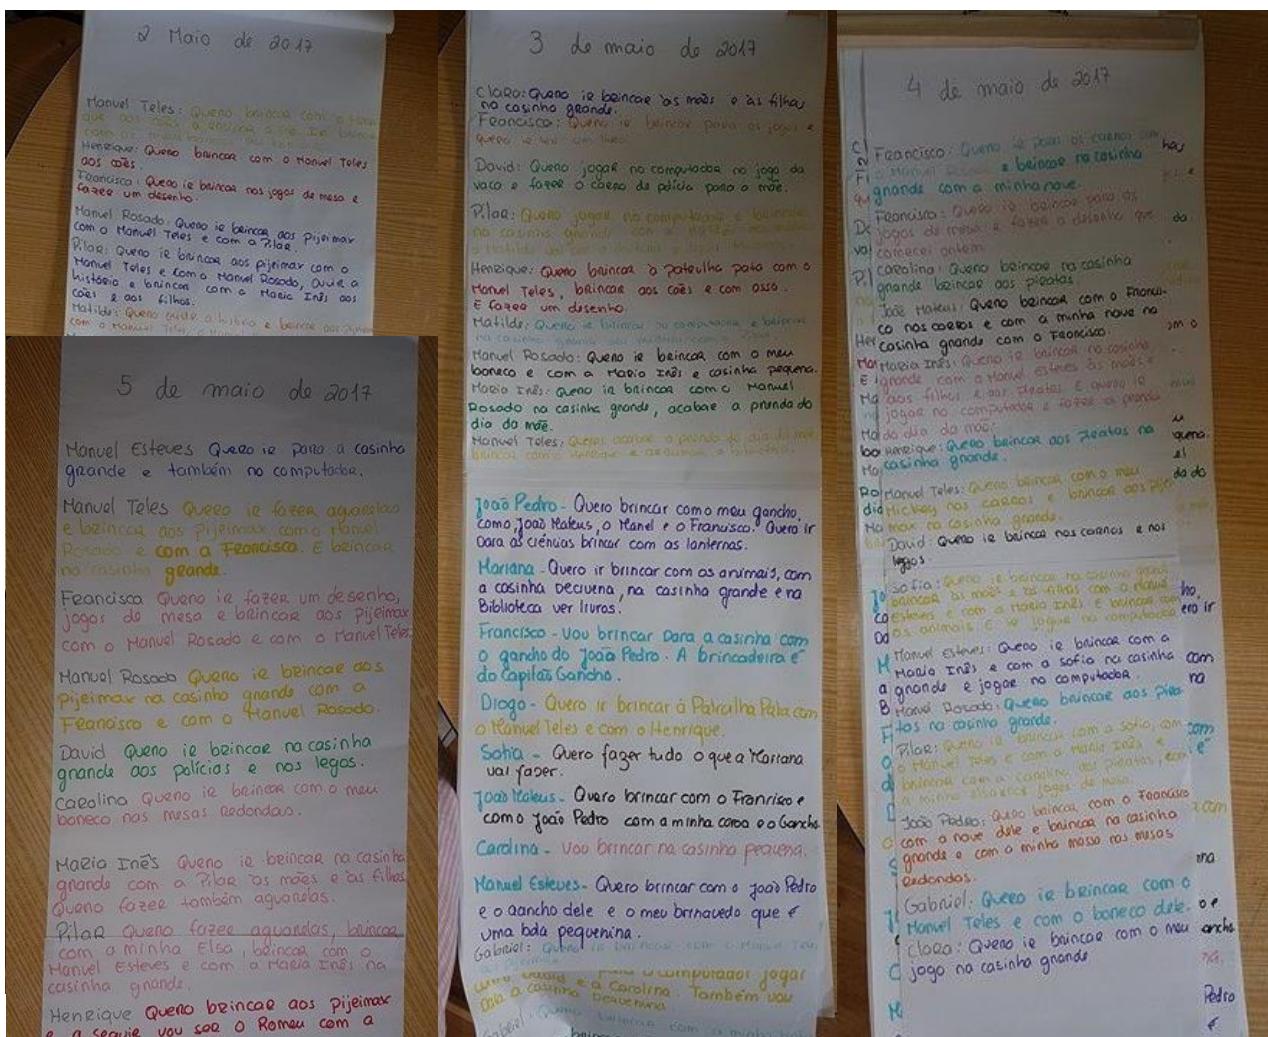 2 Maio de 2017
Manuel Teles: Quero brincar com o
que aos cães
Henrique: Quero brincar com o Manuel Teles
aos cães.
Francisca: Quero ir brincar nos jogos de mesa e
fazer um desenho.
Manuel Rosado: Quero ir brincar aos Pijeimax
com o Manuel Teles e com a Pilar
Pilar: Quero ir brincar aos pijeimax com o
Manuel Teles e com o Manuel Rosado, ouvir a
história e brincar com a Maria Inês aos
cães e aos filhos.
Matilde: Quero ouvir a história e brincar aos
com o Manuel Teles,
5 de maio de 2017
Manuel Esteves Quero ir para a casinha
grande e também no computador.
Manuel Teles Quero ir fazer aguarelas
e brincar aos pijeimax com o Manuel
Rosado e com a Francisca. E brincar
na casinha grande.
Francisca Quero ir fazer um desenho,
jogos de mesa e brincar aos Pijeimax
com o Manuel Rosado e com o Manuel Teles
Manuel Rosado Quero ir brincar aos
pijeimax na casinha grande com a
Francisca e com o Manuel Rosado.
David Quero ir brincar na casinha
grande aos polícias e nos legos.
Carolina Quero ir brincar com o meu
boneco nas mesas redondas.
Maria Inês Quero ir brincar na casinha
grande com a Pilar às mães e às filhas
Quero fazer também aguarelas.
Pilar Quero fazer aguarelas, brincar
com a minha Elsa, brincar com o
Manuel Esteves e com a Maria Inês na
casinha grande.
Henrique Quero brincar aos pijeimax
e a seguir vou ser o Romeu com a
3 de maio de 2017
Clara: Quero ir brincar às mães e às filhas
na casinha grande.
Francisca: Quero ir brincar para os jogos e
quero ir ler um livro.
David: Quero jogar no computador no jogo da
vaca e fazer o carro da polícia para a mãe.
Pilar: Quero jogar no computador e brincar
na casinha grande com a
Henrique: Quero brincar à patrulha pata com o
Manuel Teles, brincar aos cães e com osso.
E fazer um desenho.
Matilde: Quero ir brincar no computador e brincar
na casinha grande
Manuel Rosado: Quero ir brincar com o meu
boneco e com a Maria Inês e casinha pequena.
Maria Inês: Quero ir brincar com o Manuel
Rosado na casinha grande, acabar a prenda do
dia da mãe.
Manuel Teles: Quero acabar a prenda do dia da mãe,
brincar com o Henrique e
João Pedro - Quero brincar com o meu gancho,
com o João Mateus, o Manel e o Francisco. Quero ir
para as ciências brincar com as lanternas.
Mariana - Quero ir brincar com os animais, com
a casinha pequena, na casinha grande e na
Biblioteca ver livros.
Francisco - Vou brincar para a casinha com
o gancho do João Pedro. A brincadeira é
do Capitão Gancho.
Diogo - Quero ir brincar à Patrulha Pata com
o Manuel Teles e com o Henrique.
Sofia - Quero fazer tudo o que a Mariana
vai fazer.
João Mateus - Quero brincar com o Francisco e
com o João Pedro com a minha coroa e o Gancho.
Carolina - Vou brincar na casinha pequena.
Manuel Esteves - Quero brincar com o João Pedro
e o gancho dele e o meu brinquedo que é
uma bola pequenina.
Gabriel: Quero ir brincar com o Manuel Teles
para o computador jogar
e a Carolina. Também vou
para a casinha pequenina
Gabriel: Quero brincar com a minha
4 de maio de 2017
Francisco: Quero ir para os carros com
o Manuel Rosado e brincar na casinha
grande com a minha nave.
Francisca: Quero ir brincar para os
jogos de mesa e fazer o desenho que
comecei ontem.
Carolina: Quero ir brincar na casinha
grande brincar aos piratas.
João Mateus: Quero brincar com o Francis-
co nos carros e com a minha nave na
casinha grande com o Francisco.
Maria Inês: Quero ir brincar na casinha
grande com o Manuel Esteves às mães e
aos filhos e aos Piratas. E quero ir
jogar no computador e fazer a prenda
do dia da mãe.
Henrique: Quero brincar aos Piratas na
casinha grande.
Manuel Teles: Quero ir brincar com o meu
Mickey nos carros e brincar aos pijei
max na casinha grande.
David: Quero ir brincar nos carros e nos
legos
Sofia: Quero ir brincar na casinha grande
brincar às mães e às filhas com o Manuel
Esteves e com a Maria Inês. E brincar com
os animais. E ir jogar no computador
Manuel Esteves: Quero ir brincar com a
Maria Inês e com a Sofia na casinha
grande e jogar no computador.
Manuel Rosado: Quero brincar aos pira-
tas na casinha grande.
Pilar: Quero ir brincar com a Sofia, com
o Manuel Teles e com a Maria Inês e
brincar com a Carolina aos piratas, com
a minha jogos de mesa.
João Pedro: Quero brincar com o Francisco
com a nave dele e brincar na casinha
grande e com a minha massa nas mesas
redondas.
Gabriel: Quero ir brincar com o
Manuel Teles e com o boneco dele.
Clara: Quero ir brincar com o meu
jogo na casinha grande